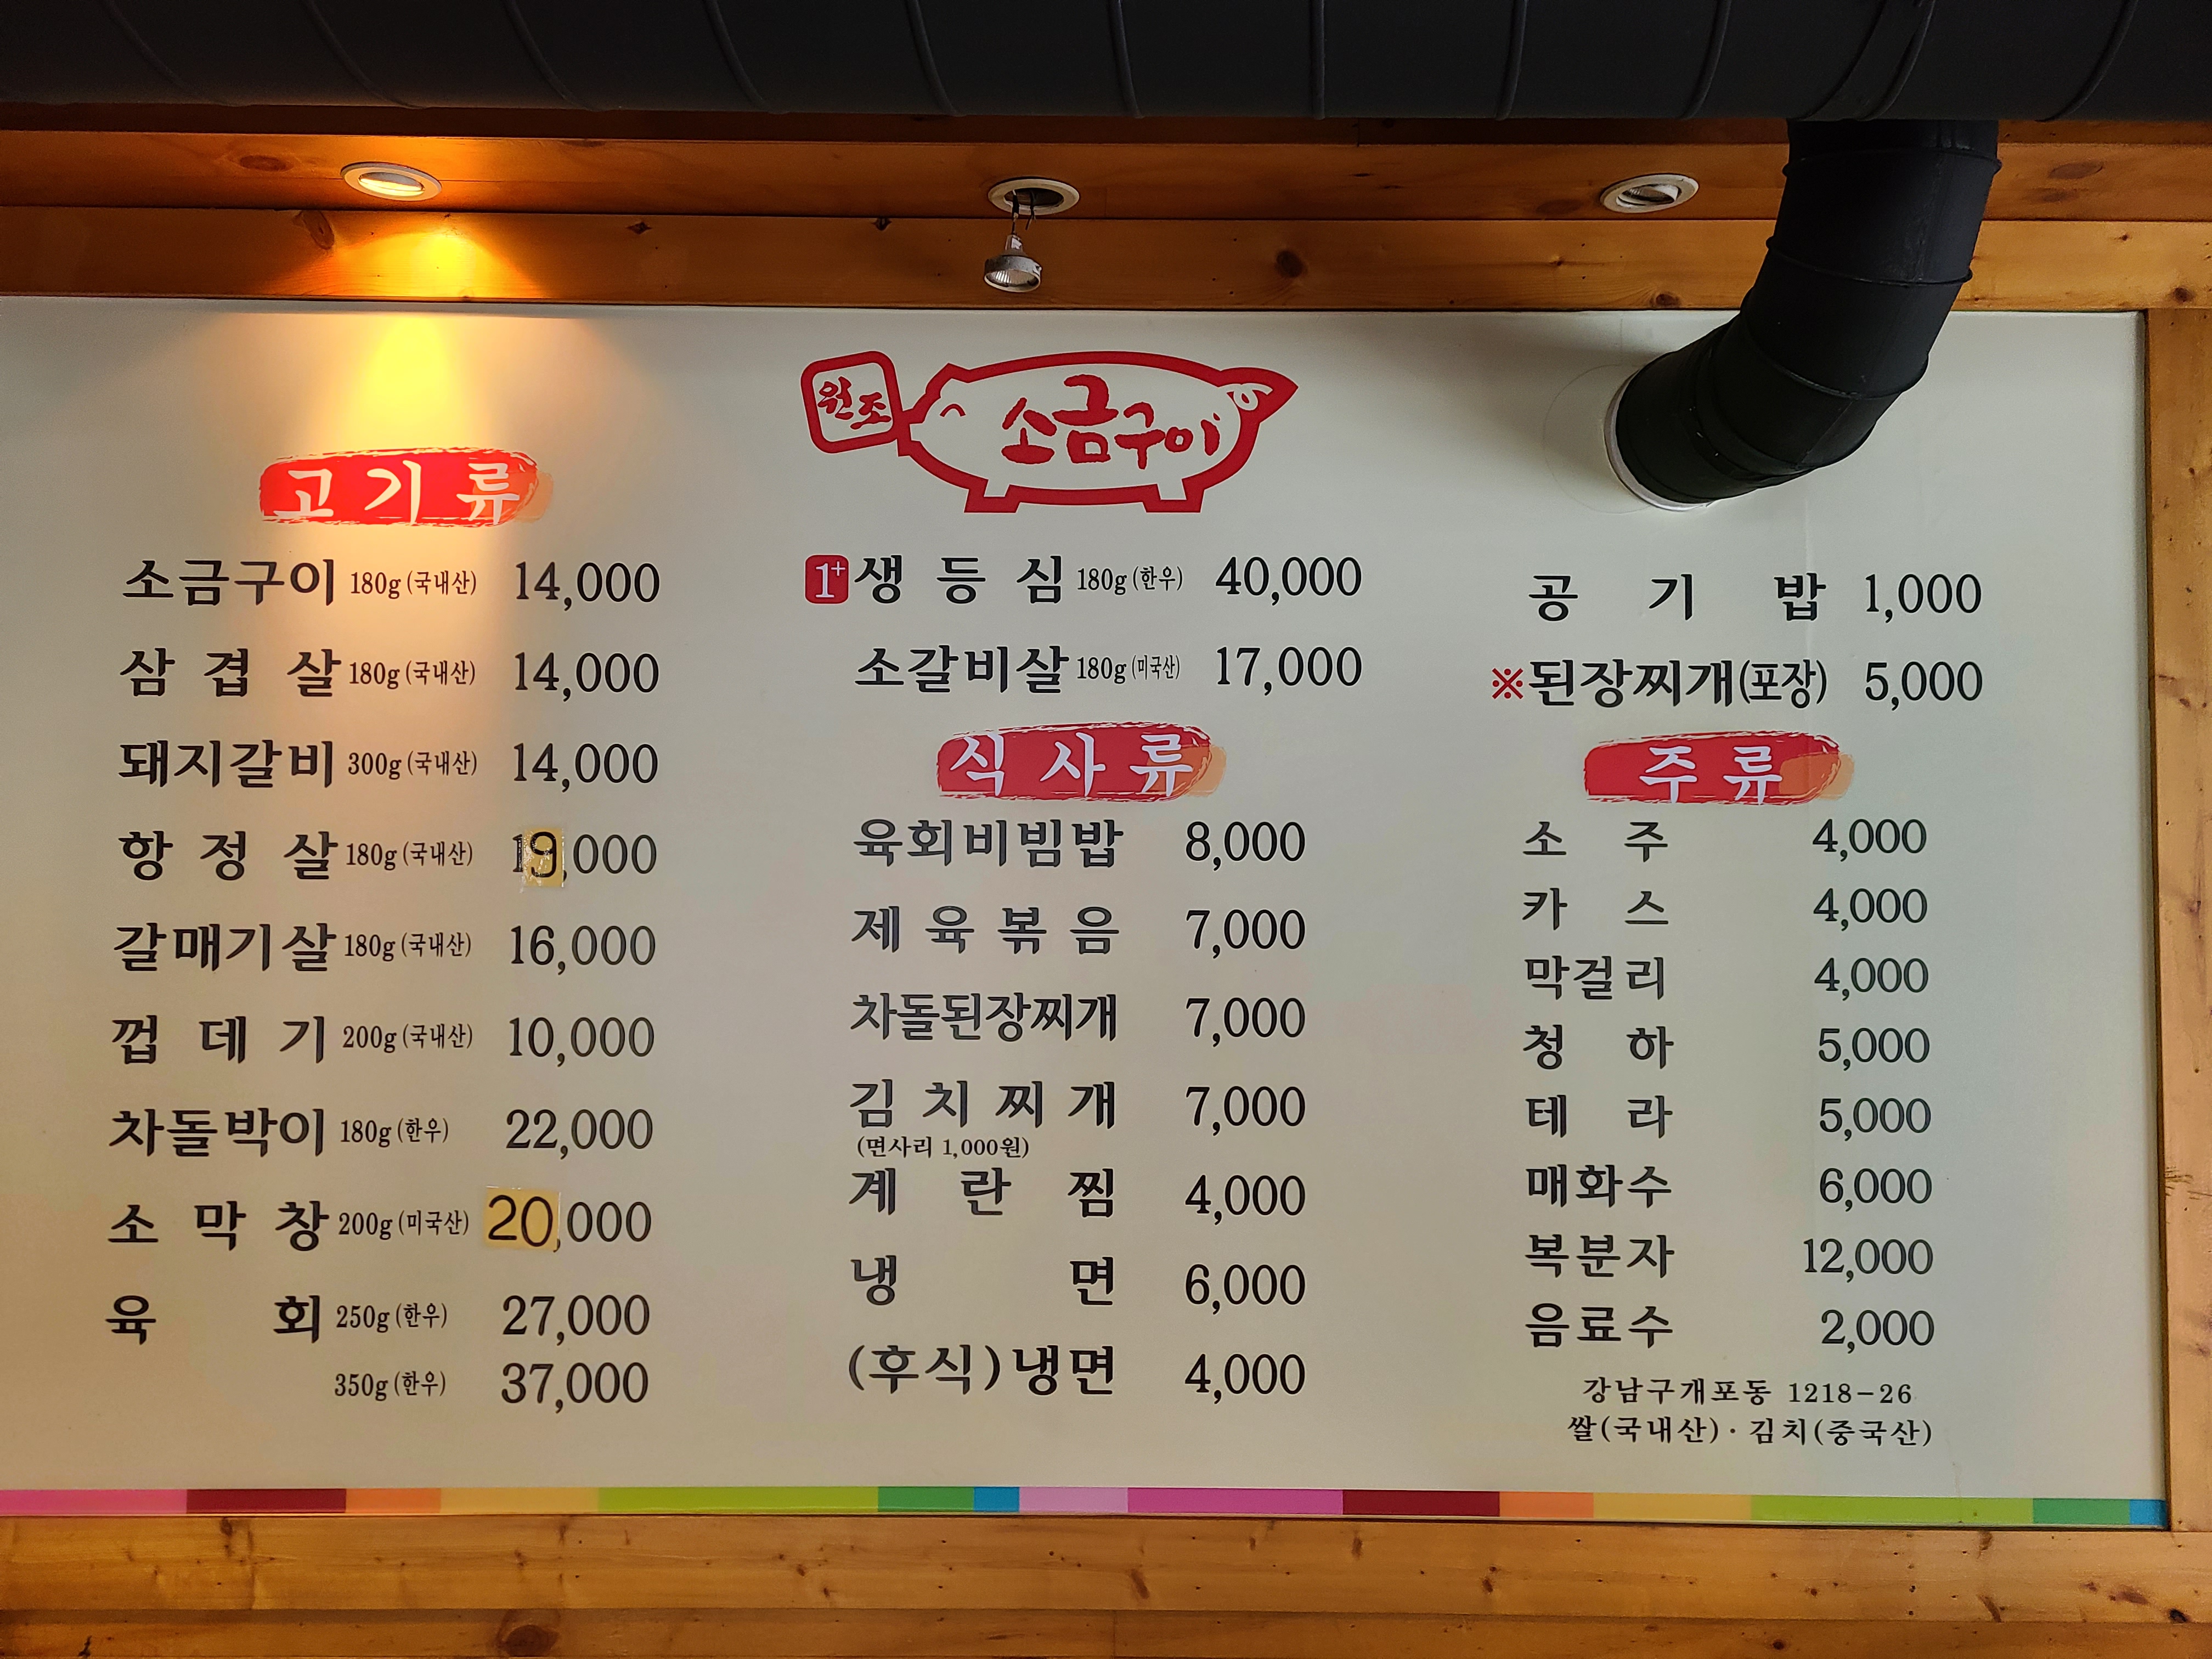 원조
소금구이
고기류
소금구이 180g (국내산) 14,000
삼겹살 180g (국내산) 14,000
돼지갈비 300g (국내산) 14,000
항정살 180g (국내산) 19,000
갈매기살 180g (국내산) 16,000
껍데기 200g (국내산) 10,000
차돌박이 180g (한우) 22,000
소막창 200g (미국산) 20,000
육회 250g (한우) 27,000
350g (한우) 37,000
1+ 생등심 180g (한우) 40,000
소갈비살 180g (미국산) 17,000
식사류
육회비빔밥 8,000
제육볶음 7,000
차돌된장찌개 7,000
김치찌개 7,000
(면사리 1,000원)
계란찜 4,000
냉면 6,000
(후식)냉면 4,000
공기밥 1,000
※된장찌개(포장) 5,000
주류
소주 4,000
카스 4,000
막걸리 4,000
청하 5,000
테라 5,000
매화수 6,000
복분자 12,000
음료수 2,000
강남구개포동 1218-26
쌀(국내산)·김치(중국산)